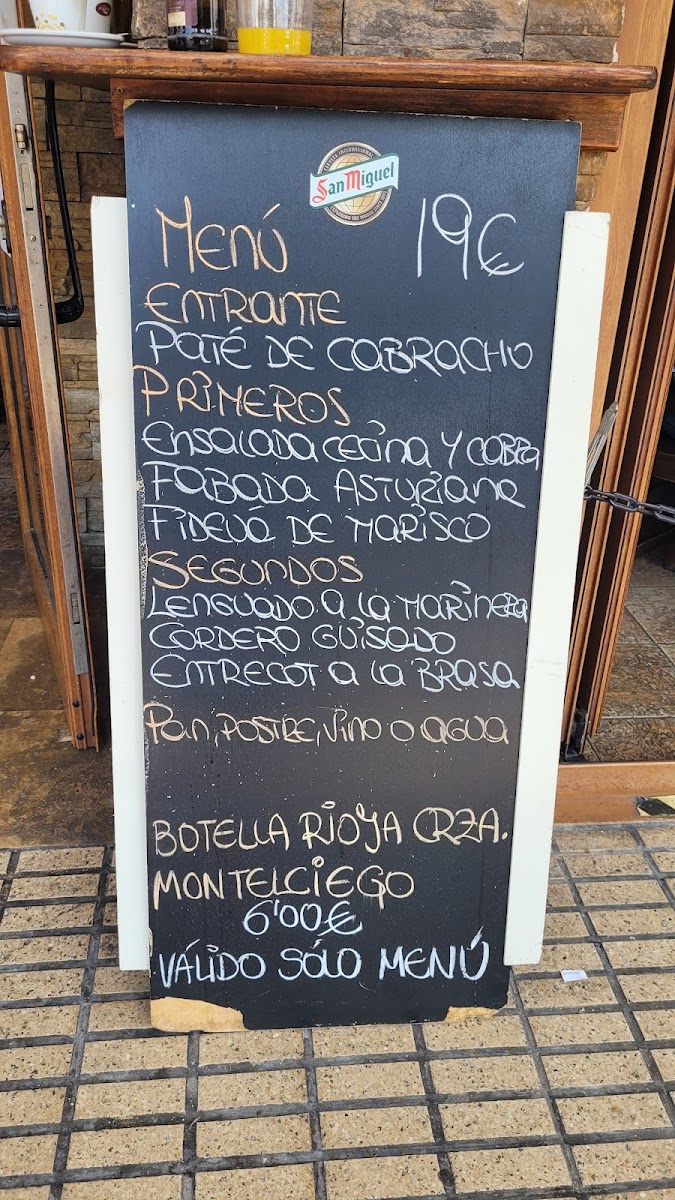 San Miguel
Menú 19€
ENTRANTE
Paté DE CABRACHO
PRIMEROS
Ensalada cecina y cabra
Fabada Asturiana
Fideuá de marisco
SEGUNDOS
Lenguado a la marinera
Cordero guisado
Entrecot a la brasa
Pan, postre, vino o agua
BOTELLA RIOJA CRZA.
MONTELCIEGO
6'00€
VÁLIDO SÓLO MENÚ